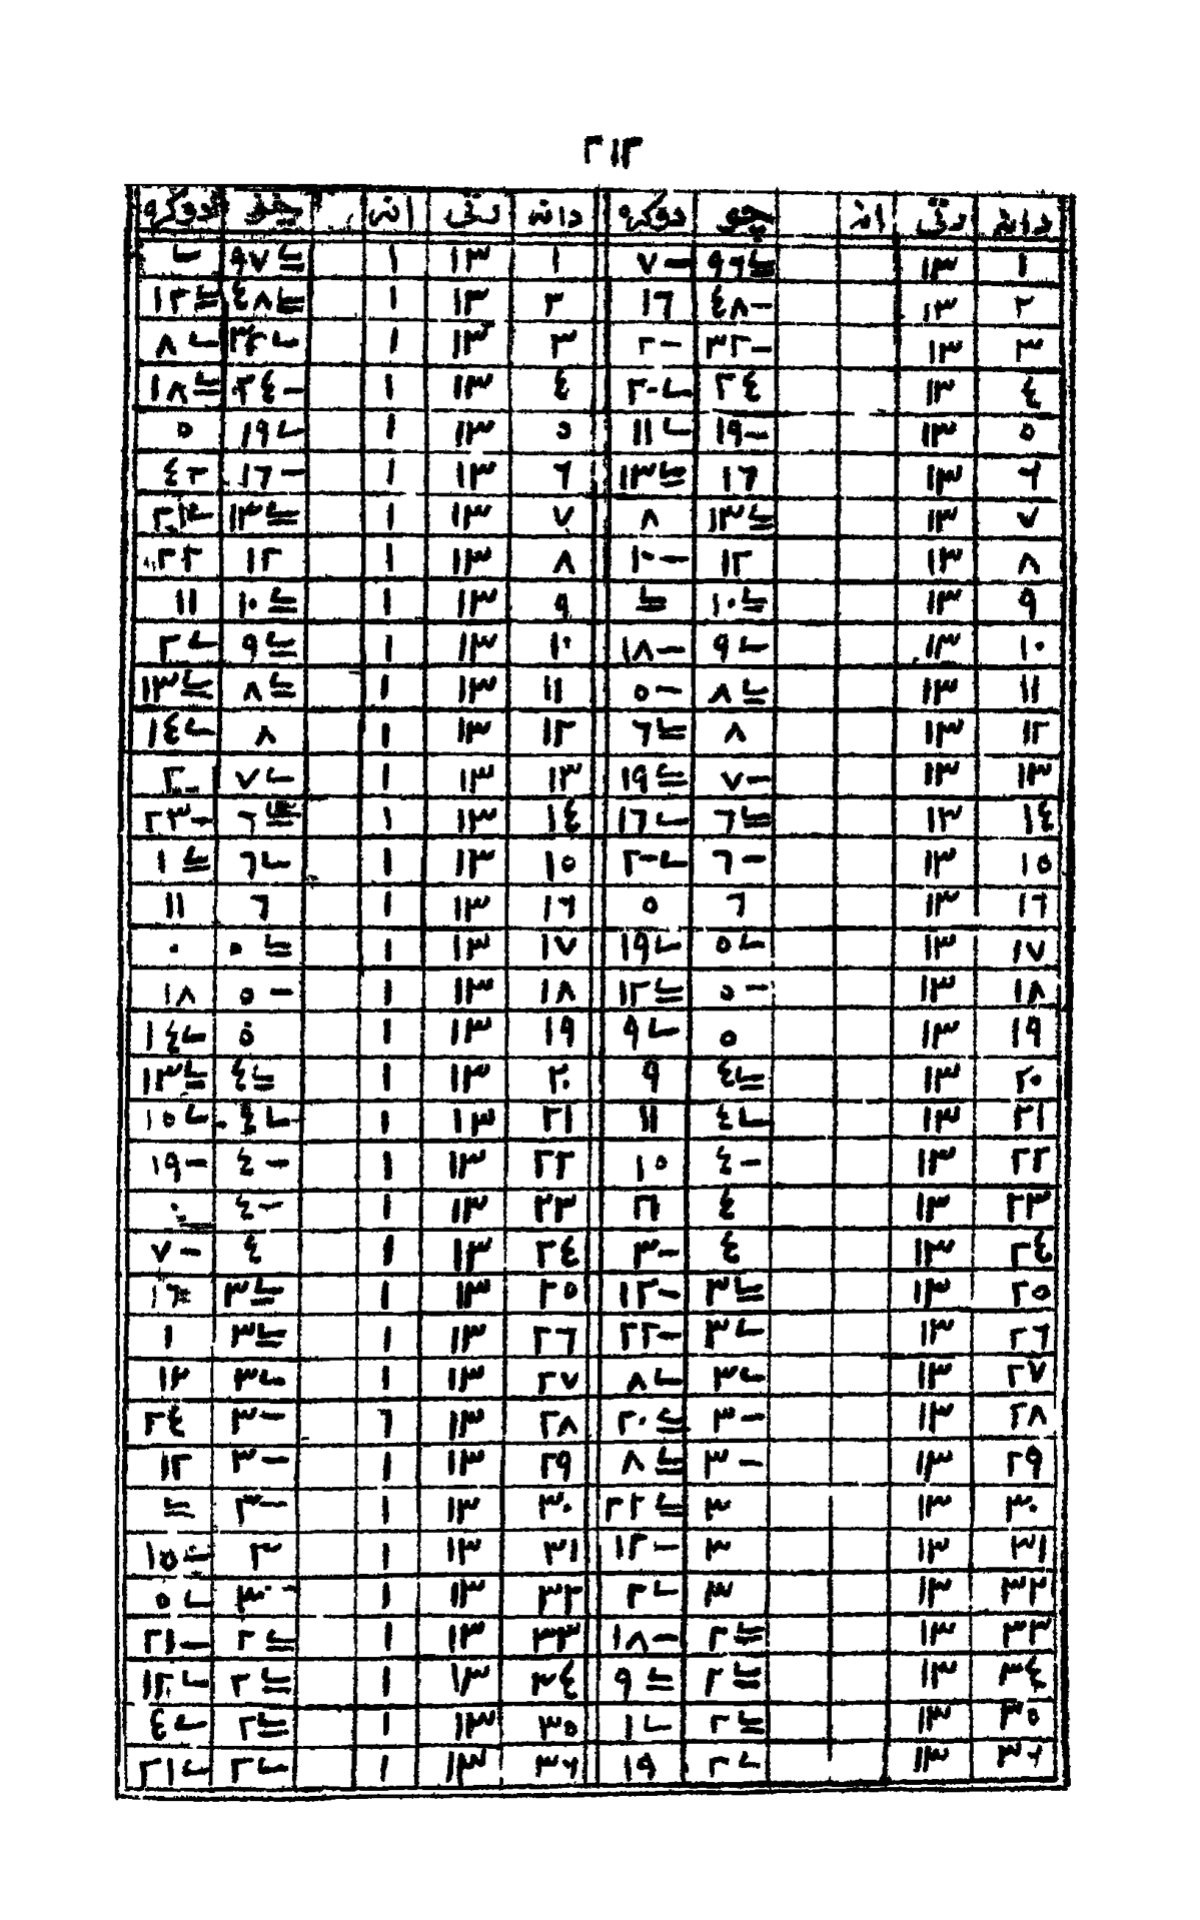 ٢١٣
دانه رتي انه چو دوكره دانه رتي انه چو دوكره
١ ١٣ ٩٦ - ٧ ١ ١٣ ١ ٩٧
٢ ١٣ - ٤٨ ١٦ ٢ ١٣ ١ ٤٨ ١٢
٣ ١٣ - ٣٢ - ٢ ٣ ١٣ ١ ٨
٤ ١٣ ٢٤ ٢٠ ٤ ١٣ ١ - ٢٤ ١٨
٥ ١٣ - ١٩ ١١ ٥ ١٣ ١ ١٩ ٥
٦ ١٣ ١٦ ١٣ ٦ ١٣ ١ - ١٦ ٢٤
٧ ١٣ ١٣ ٨ ٧ ١٣ ١ ١٣ ٢١
٨ ١٣ ١٢ - ١٠ ٨ ١٣ ١ ١٢ ٢٢
٩ ١٣ ١٠ ٩ ١٣ ١ ١٠ ١١
١٠ ١٣ ٩ - ١٨ ١٠ ١٣ ١ ٩ ٢
١١ ١٣ ٨ - ٥ ١١ ١٣ ١ ٨ ١٣
١٢ ١٣ ٨ ٦ ١٢ ١٣ ١ ٨ ١٤
١٣ ١٣ - ٧ ١٩ ١٣ ١٣ ١ ٧
١٤ ١٣ ٦ ١٦ ١٤ ١٣ ١ ٦ - ٢٣
١٥ ١٣ - ٦ ٢٠ ١٥ ١٣ ١ ٦ ١
١٦ ١٣ ٦ ٥ ١٦ ١٣ ١ ٦ ١١
١٧ ١٣ ٥ ١٩ ١٧ ١٣ ١ ٥ ٠
١٨ ١٣ - ٥ ١٢ ١٨ ١٣ ١ - ٥ ١٨
١٩ ١٣ ٥ ٩ ١٩ ١٣ ١ ٥ ١٤
٢٠ ١٣ ٤ ٩ ٢٠ ١٣ ١ ٤ ١٣
٢١ ١٣ ٤ ١١ ٢١ ١٣ ١ ٤ ١٥
٢٢ ١٣ - ٤ ١٥ ٢٢ ١٣ ١ - ٤ - ١٩
٢٣ ١٣ ٤ ٢١ ٢٣ ١٣ ١ - ٤
٢٤ ١٣ ٤ - ٣ ٢٤ ١٣ ١ ٤ - ٧
٢٥ ١٣ ٣ - ١٢ ٢٥ ١٣ ١ ٣ ١٦
٢٦ ١٣ ٣ - ٢٢ ٢٦ ١٣ ١ ٣ ١
٢٧ ١٣ ٣ ٨ ٢٧ ١٣ ١ ٣ ١٢
٢٨ ١٣ - ٣ ٢٠ ٢٨ ١٣ ٦ - ٣ ٢٤
٢٩ ١٣ - ٣ ٨ ٢٩ ١٣ ١ - ٣ ١٢
٣٠ ١٣ ٣ ٢٢ ٣٠ ١٣ ١ - ٣
٣١ ١٣ ٣ - ١٢ ٣١ ١٣ ١ ٣ ١٥
٣٢ ١٣ ٣ ٢ ٣٢ ١٣ ١ ٣ ٥
٣٣ ١٣ ٢ - ١٨ ٣٣ ١٣ ١ ٢ - ٢١
٣٤ ١٣ ٢ ٩ ٣٤ ١٣ ١ ٢ ١٢
٣٥ ١٣ ٢ ١ ٣٥ ١٣ ١ ٢ ٤
٣٦ ١٣ ٢ ١٩ ٣٦ ١٣ ١ ٢ ٢١